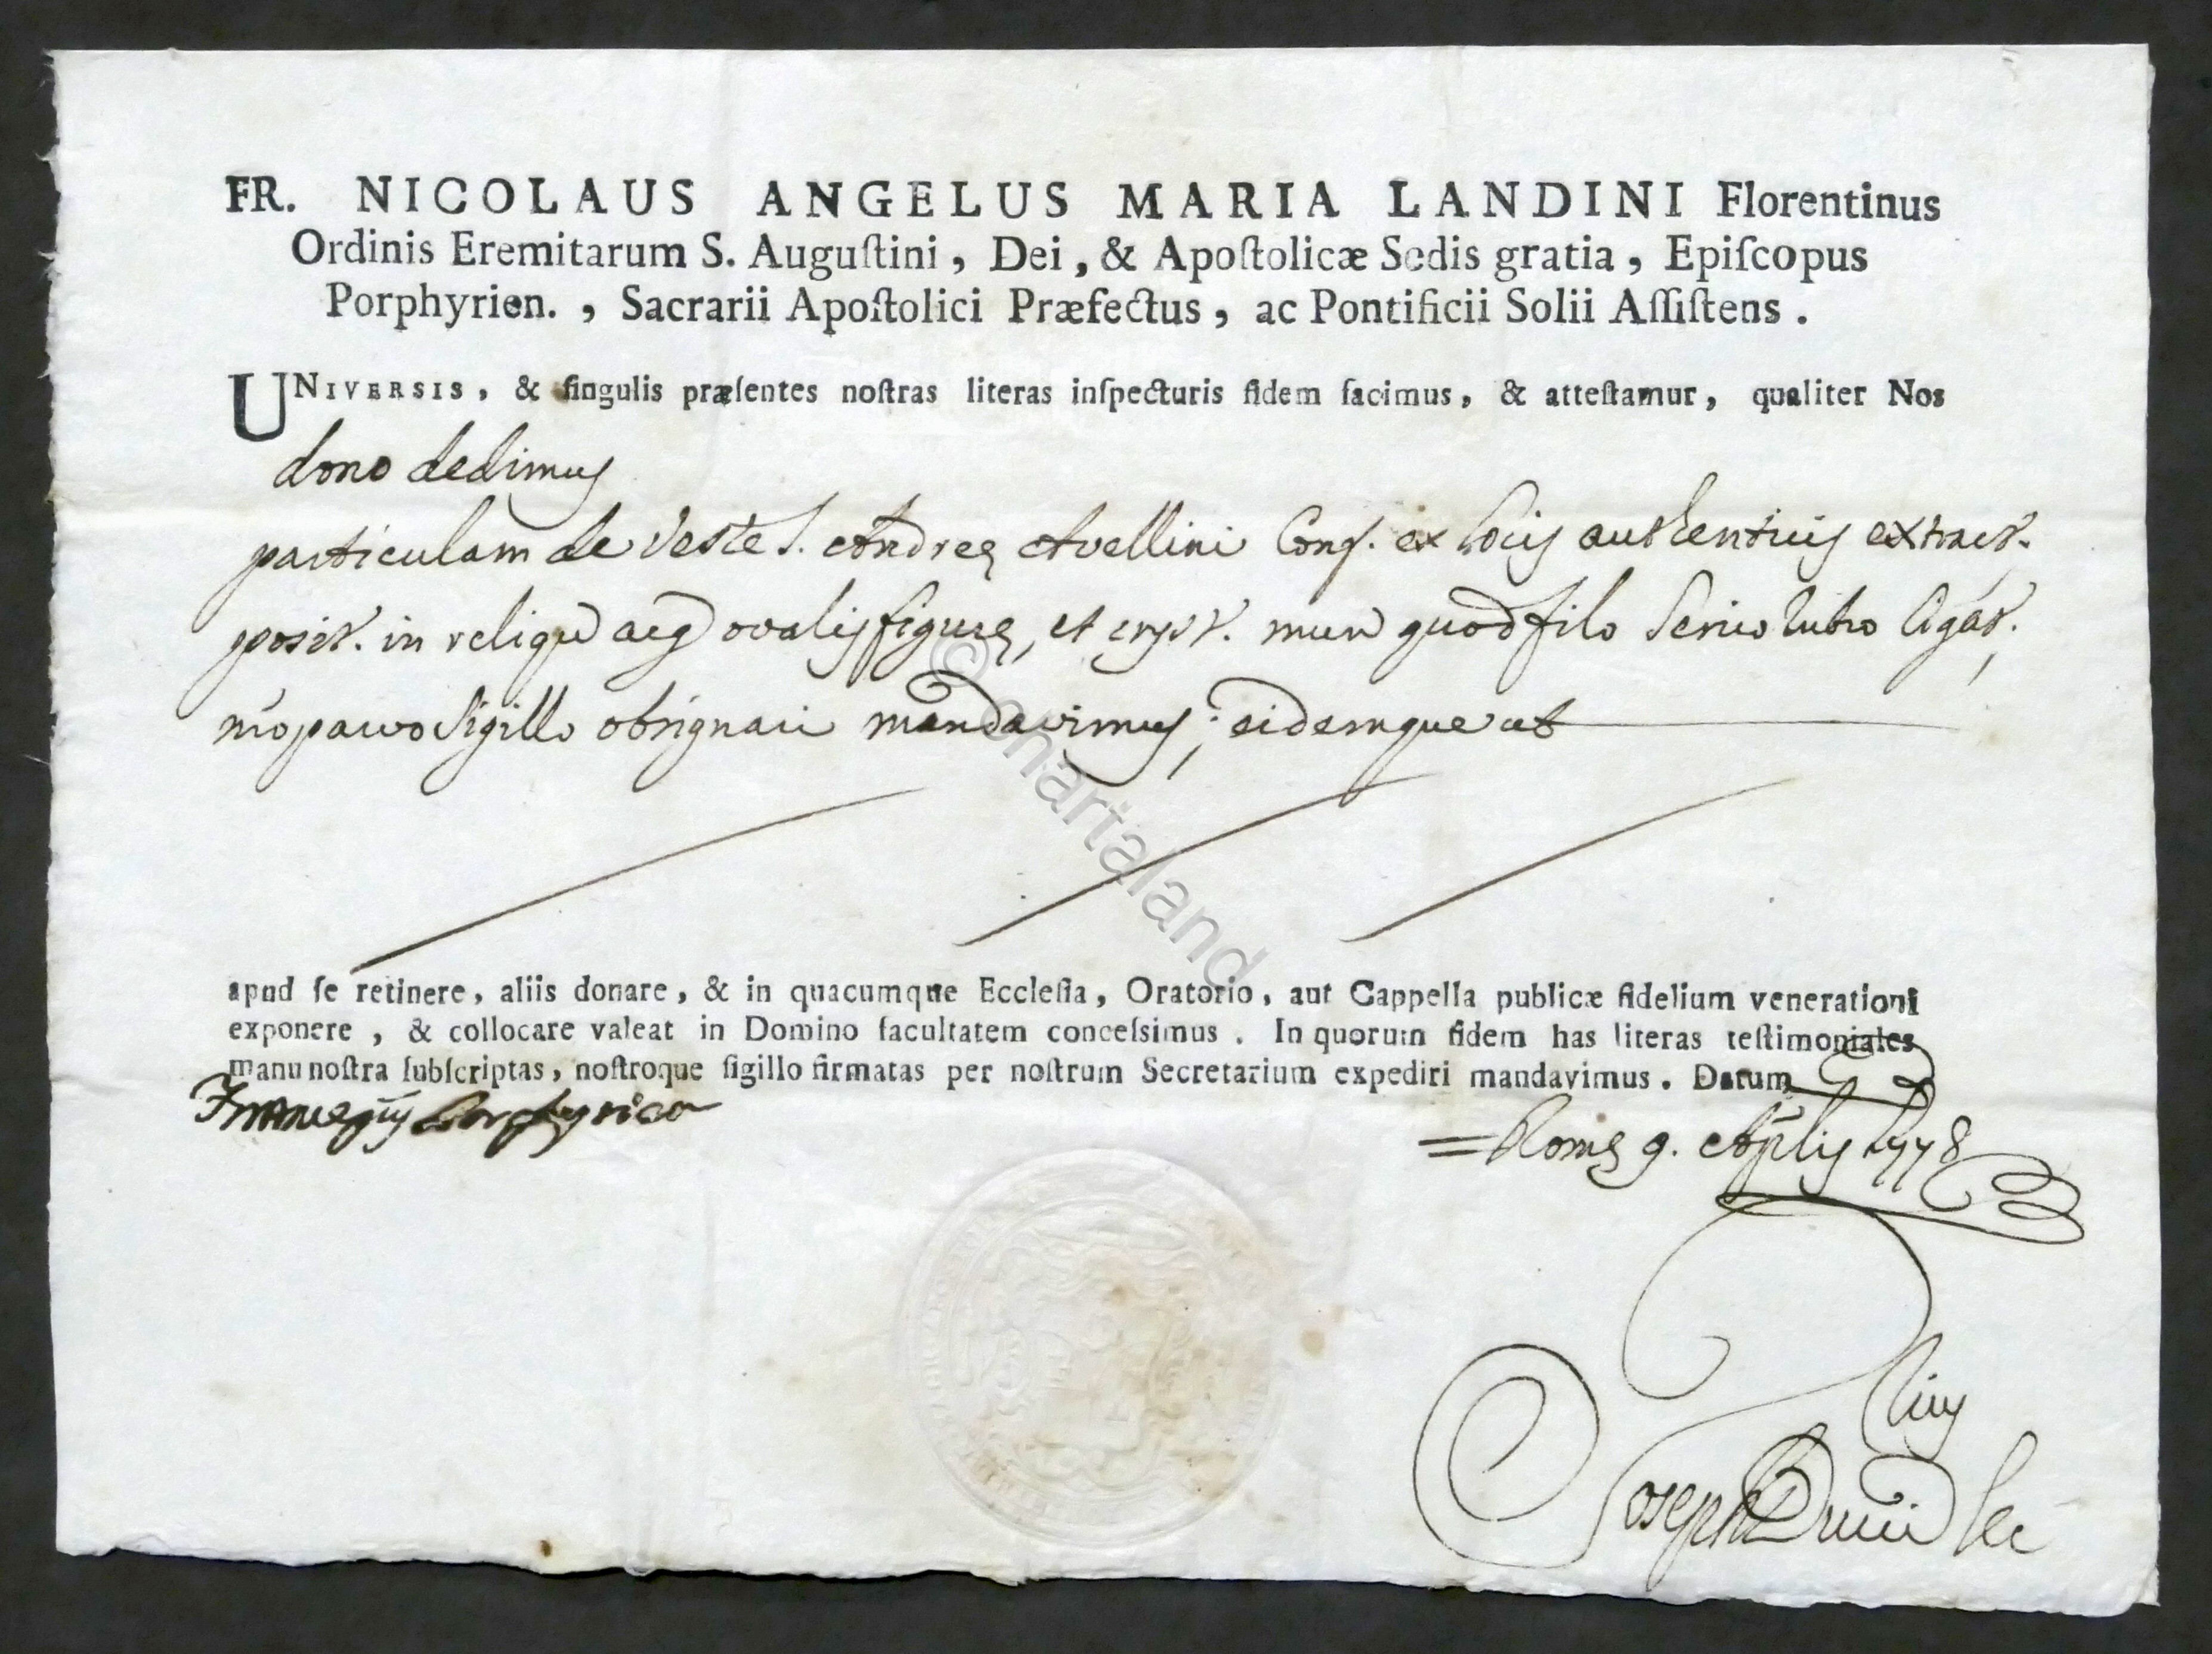 FR. NICOLAUS ANGELUS MARIA LANDINI Florentinus
Ordinis Eremitarum S. Auguſtini, Dei, & Apoſtolicæ Sedis gratia, Epiſcopus
Porphyrien., Sacrarii Apoſtolici Præfectus, ac Pontificii Solii Aſſiſtens.
UNIVERSIS, & ſingulis præſentes noſtras literas inſpecturis fidem facimus, & atteſtamur, qualiter Nos
dono dedimus
particulam de Veste S. Andreę Avellini Conf. ex locis authenticis extract.
posit. in reliqu ovalis figurę, et cryst. mun quod filo serico rubro ligat.,
nro parvo sigillo obsignari mandavimus; eidemque ut
apud ſe retinere, aliis donare, & in quacumque Eccleſia, Oratorio, aut Cappella publicæ fidelium venerationi
exponere, & collocare valeat in Domino facultatem conceſsimus. In quorum fidem has literas teſtimoniales
manu noſtra ſubſcriptas, noſtroque ſigillo firmatas per noſtrum Secretarium expediri mandavimus. Datum
= Romę 9. Aplis 1778
Joseph sec
© onartaland